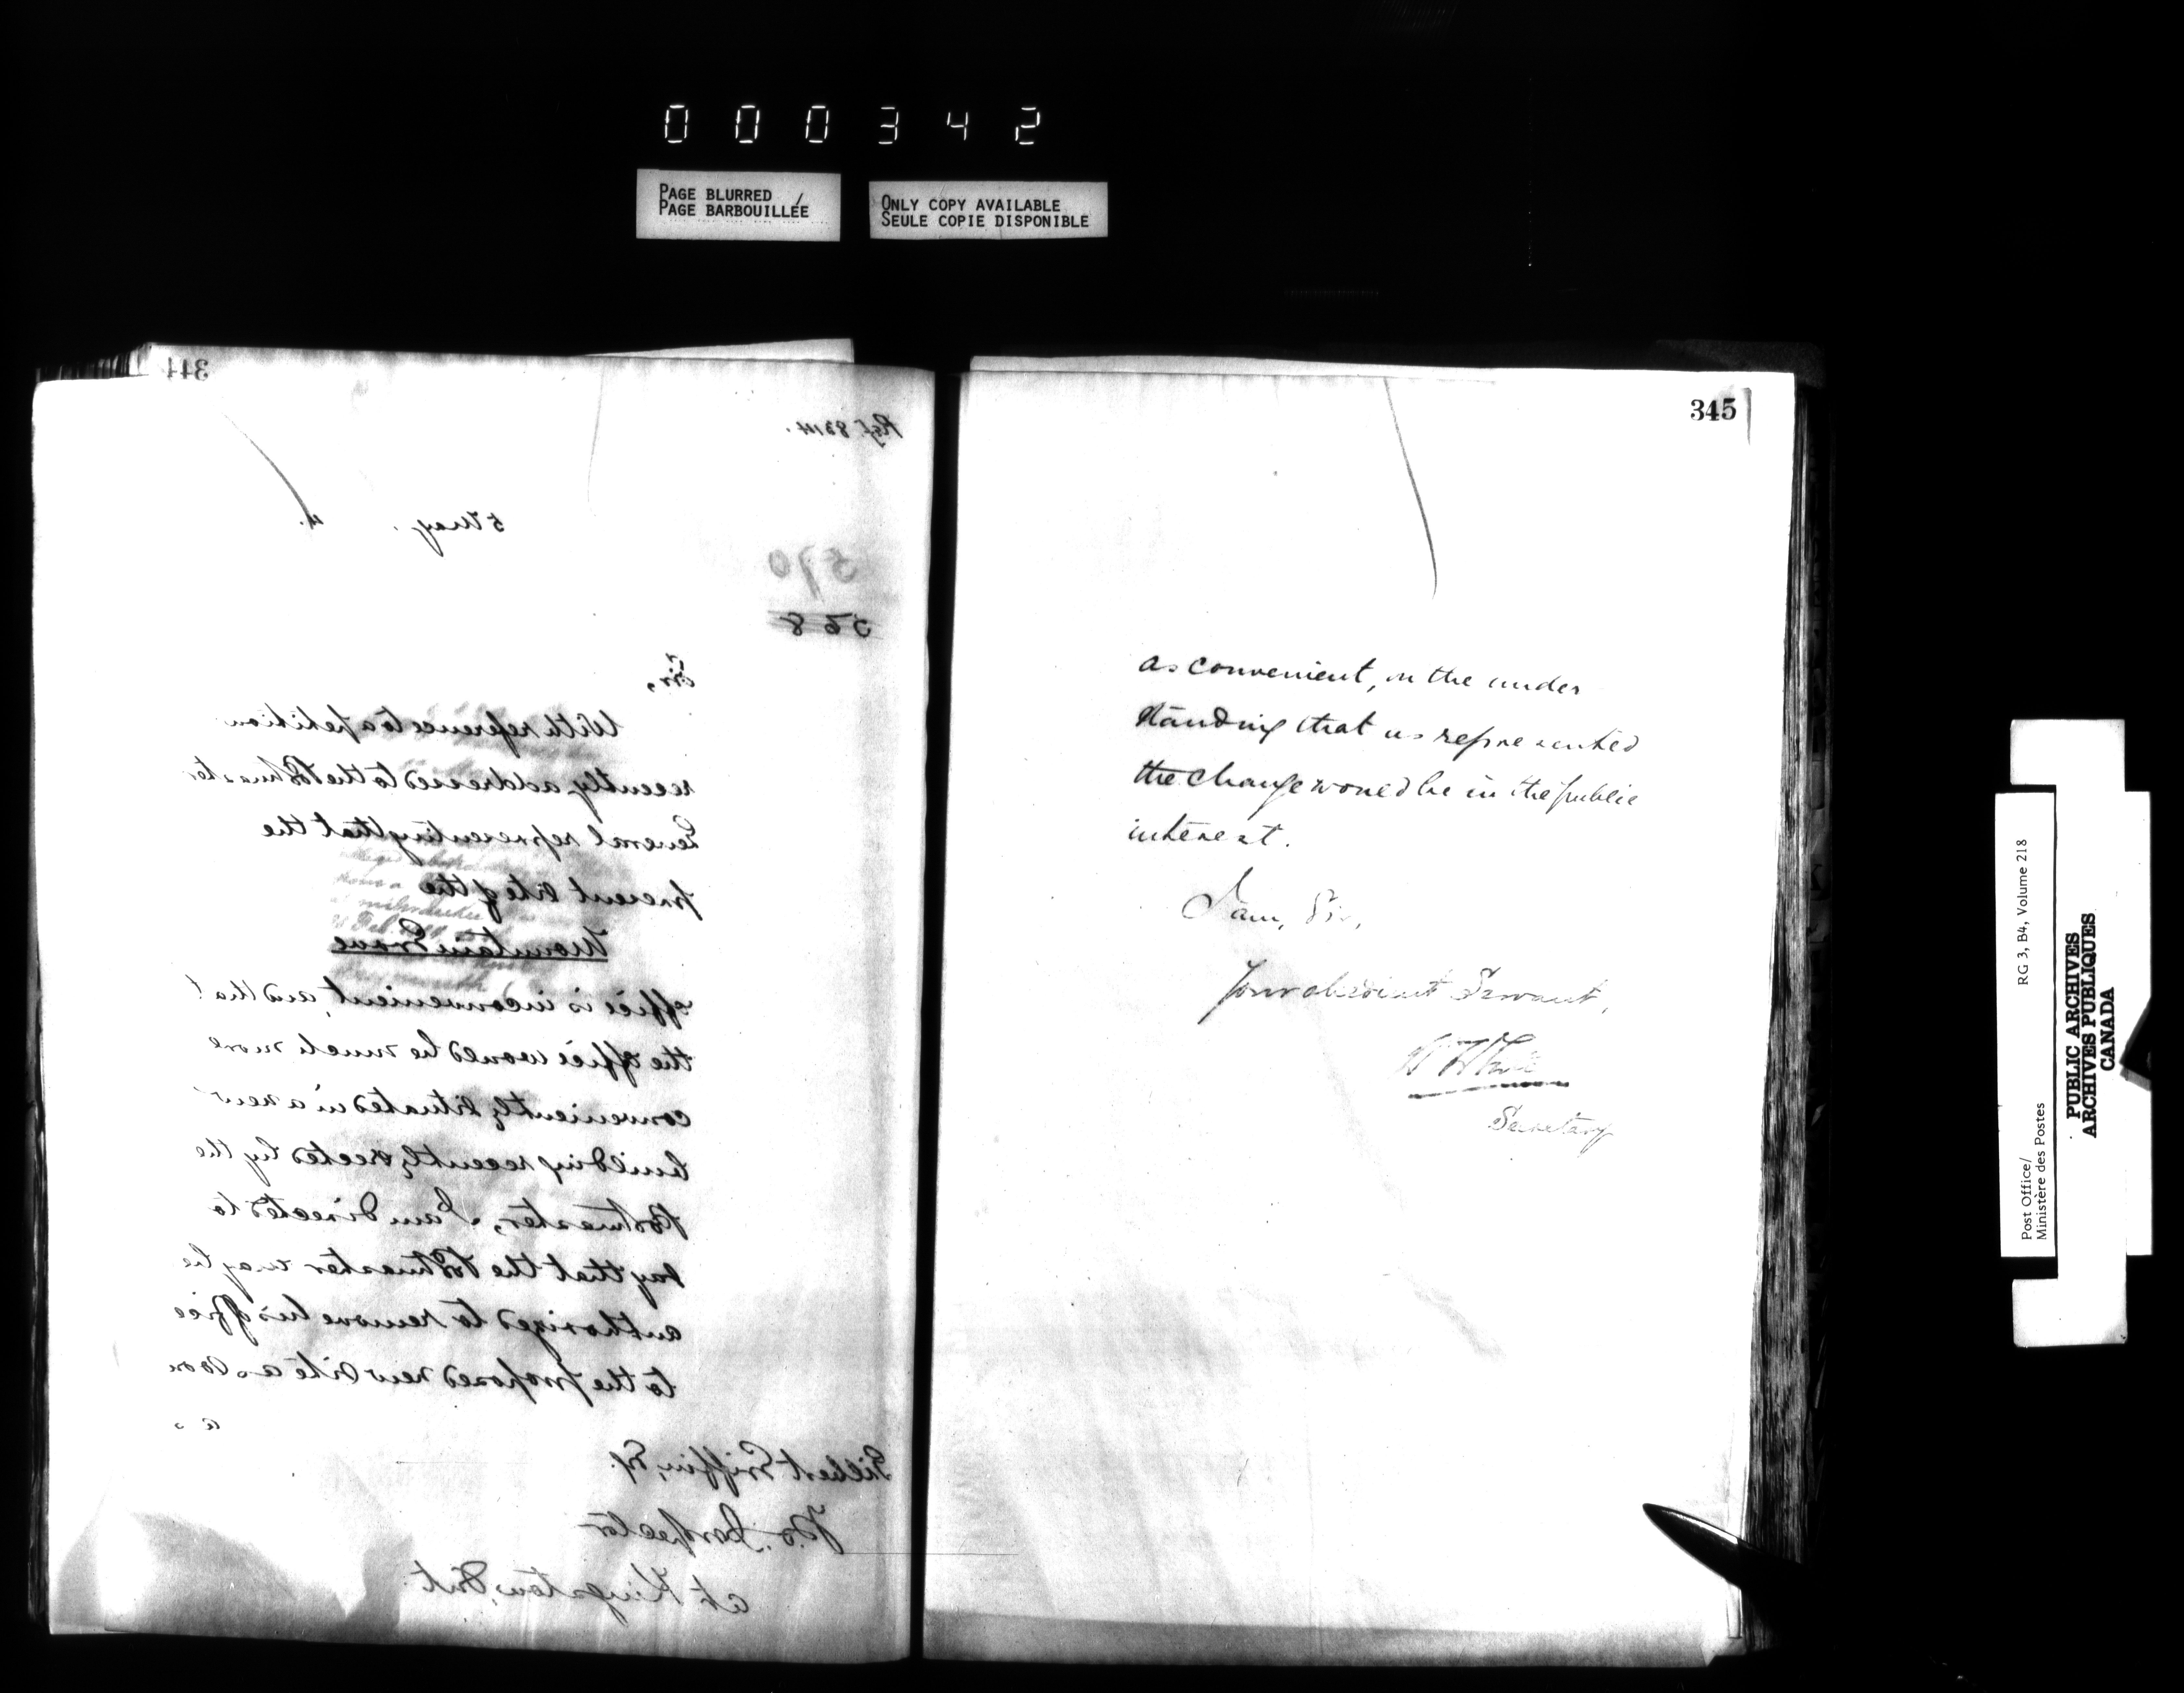 000342
PAGE BLURRED
PAGE BARBOUILLÉE
ONLY COPY AVAILABLE
SEULE COPIE DISPONIBLE
344
Ref. 8214.
5 May. 4.
570
568
Sir,
With reference to a petition
recently addressed to the Postmaster
General representing that the
present site of the
Mountain Grove
office is inconvenient, and that
the office would be much more
conveniently situated in a new
building recently erected by the
Postmaster, I am directed to
say that the Postmaster may be
authorized to remove his office
to the proposed new site as soon
as
Gilbert Griffin, Esq.
P.O. Inspector
at Kingston, Ont.
345
as convenient, on the under
standing that as represented
the change would be in the public
interest.
I am, Sir,
Your obedient Servant,
Secretary
Post Office/
Ministère des Postes
RG 3, B4, Volume 218
PUBLIC ARCHIVES
ARCHIVES PUBLIQUES
CANADA